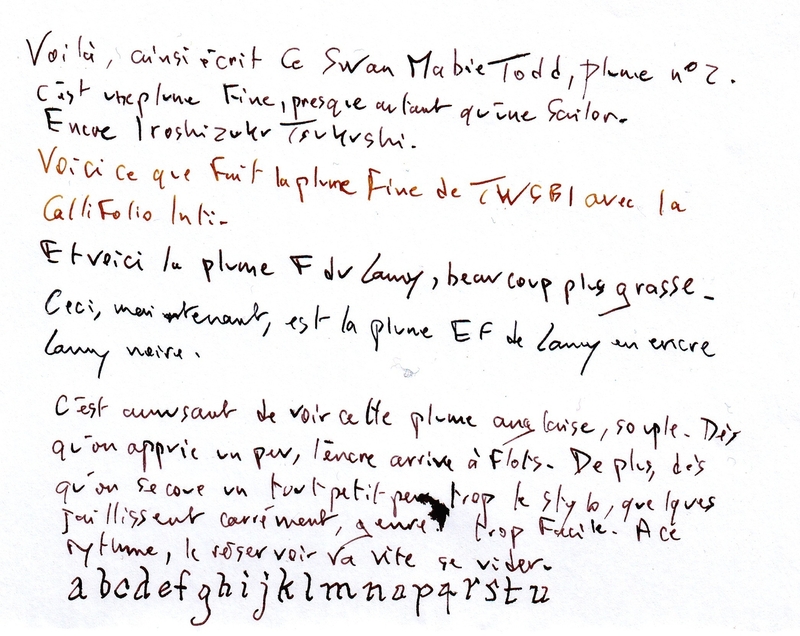 Voilà, ainsi écrit ce Swan Mabie Todd, plume n°2.
C'est une plume Fine, presque autant qu'une Sailor.
Encre Iroshizuku Tsukushi.
Voici ce que fait la plume Fine de TWSBI avec la
Callifolio Inti.
Et voici la plume F du Lamy, beaucoup plus grasse.
Ceci, maintenant, est la plume EF de Lamy en encre
Lamy noire.
C'est amusant de voir cette plume anglaise, souple. Dès
qu'on appuie un peu, l'encre arrive à flots. De plus, dès
qu'on secoue un tout petit peu trop le stylo, quelques
jaillissent carrément, genre trop facile. A ce
rythme, le réservoir va vite se vider.
a b c d e f g h i j k l m n o p q r s t u